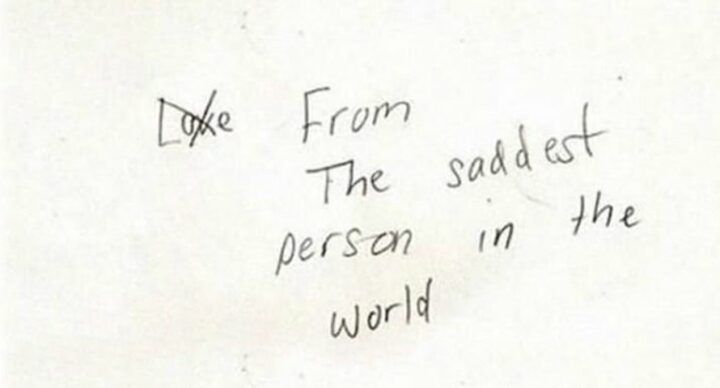 Love From
The saddest
person in the
world